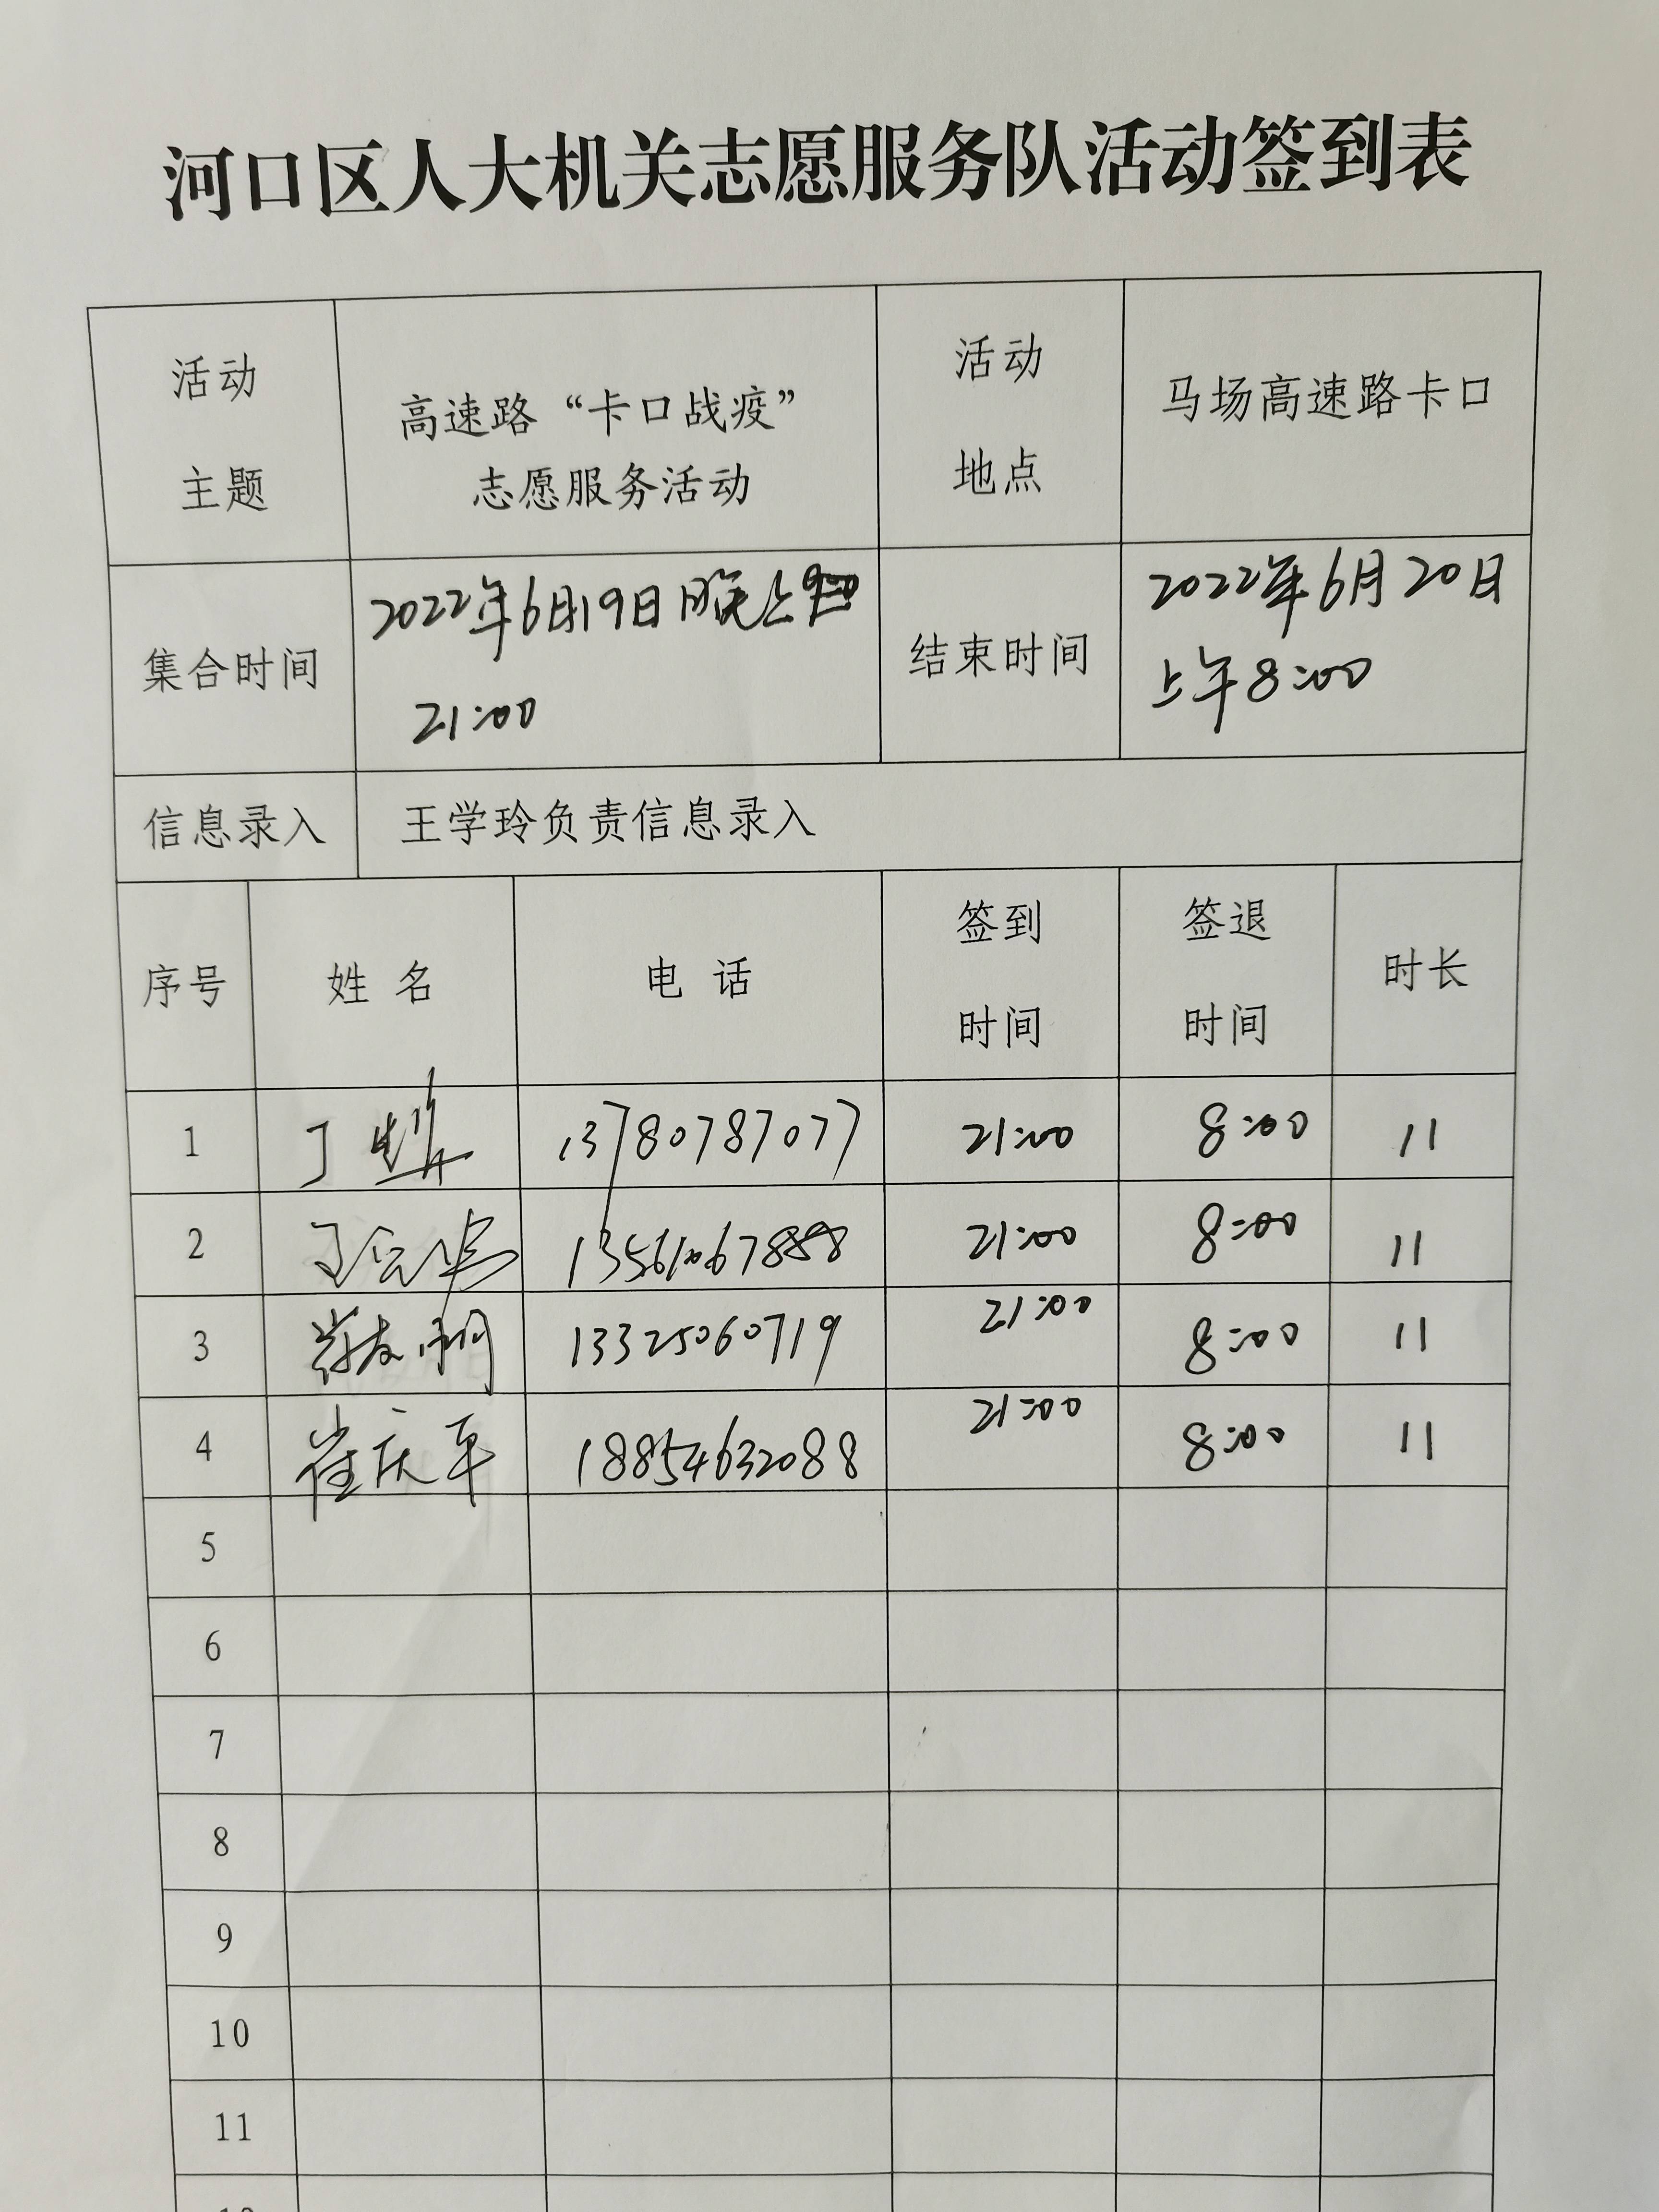 河口区人大机关志愿服务队活动签到表
活动
主题
高速路“卡口战疫”
志愿服务活动
活动
地点
马场高速路卡口
集合时间
2022年6月19日晚上
21:00
结束时间
2022年6月20日
上午8:00
信息录入
王学玲负责信息录入
序号
姓 名
电 话
签到
时间
签退
时间
时长
1
丁
13780787077
21:00
8:00
11
2
21:00
8:00
11
3
13325060719
21:00
8:00
11
4
崔庆平
18854632088
21:00
8:00
11
5
6
7
8
9
10
11